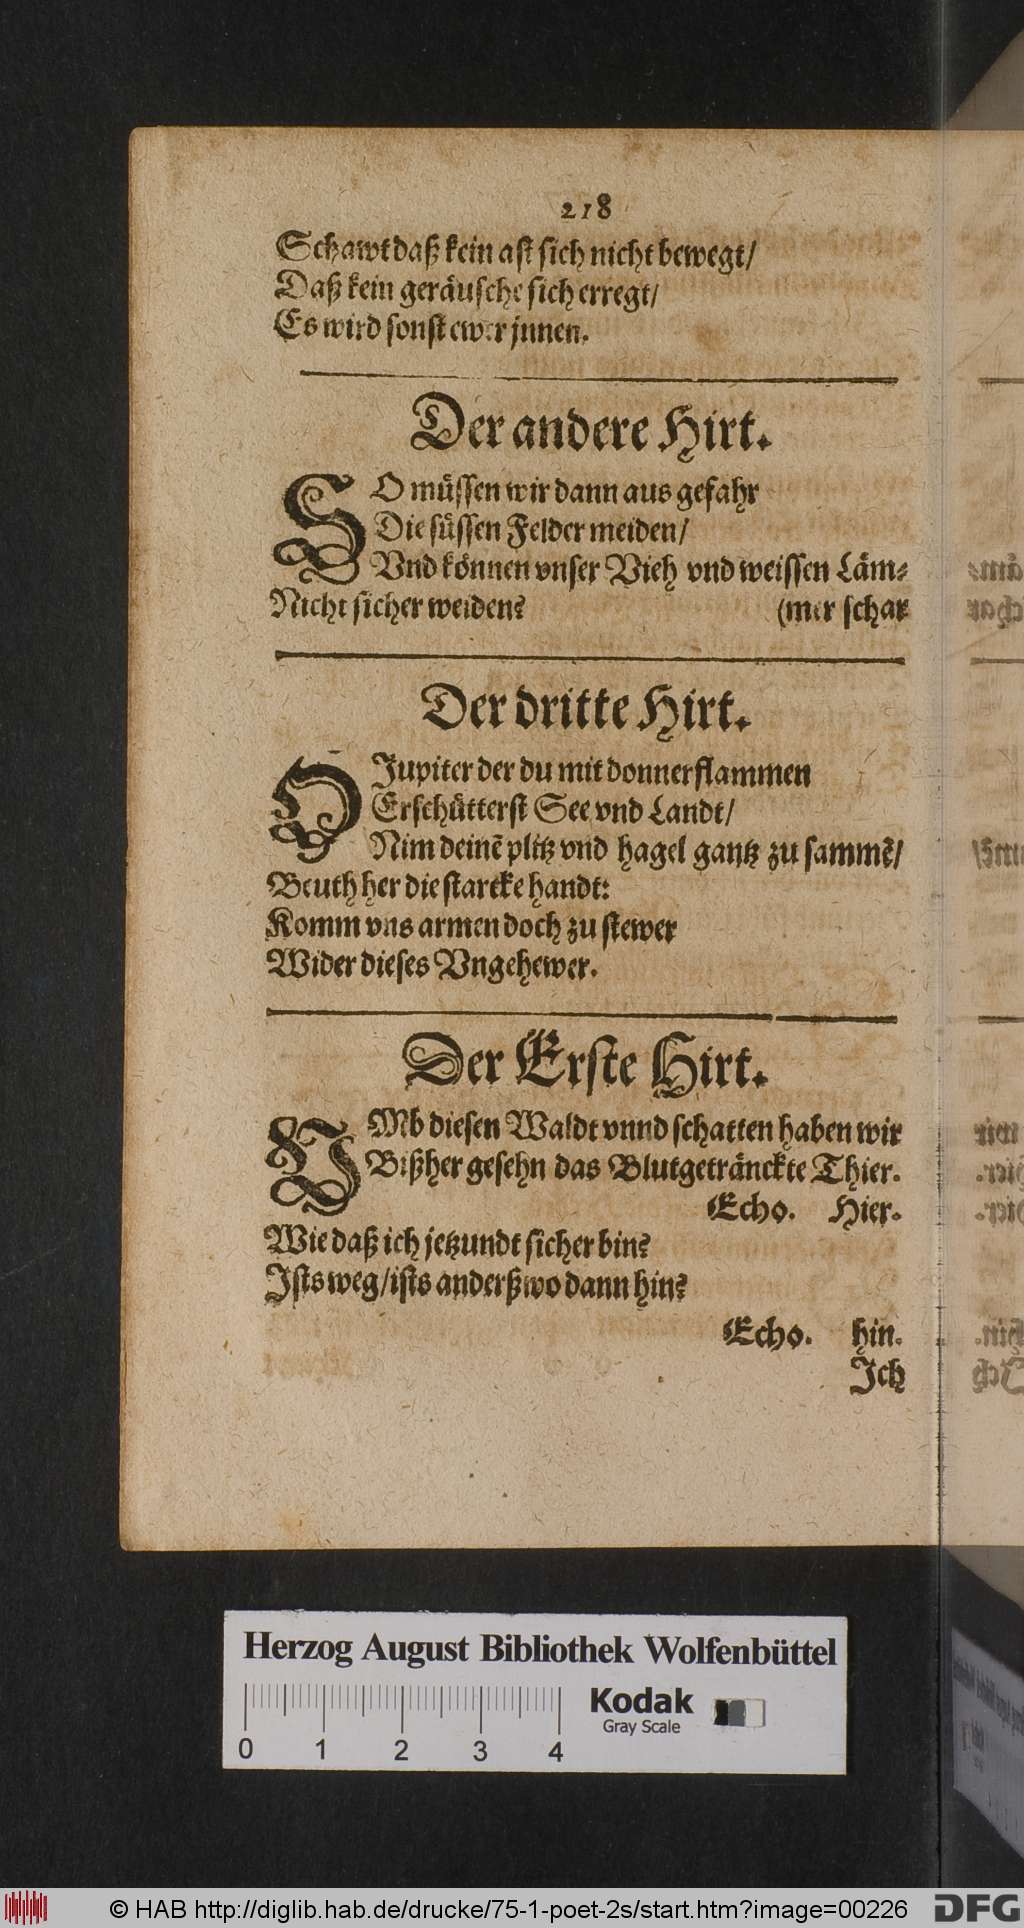 218
Schawt daß kein ast sich nicht bewegt/
Daß kein geräusche sich erregt/
Es wird sonst ewer jnnen.
Der andere Hirt.
SO müssen wir dann aus gefahr
Die süssen Felder meiden/
Vnd können vnser Vieh vnd weissen Läm⸗
Nicht sicher weiden? (mer schar
Der dritte Hirt.
O Jupiter der du mit donnerflammen
Erschütterst See vnd Landt/
Nim deinẽ plitz vnd hagel gantz zu sammẽ/
Beuth her die starcke handt:
Komm vns armen doch zu stewer
Wider dieses Vngehewer.
Der Erste Hirt.
VMb diesen Waldt vnnd schatten haben wir
Bißher gesehn das Blutgetränckte Thier.
Echo. Hier.
Wie daß ich jetzundt sicher bin?
Ists weg/ists anderßwo dann hin?
Echo. hin.
Ich
Herzog August Bibliothek Wolfenbüttel
Kodak
Gray Scale
0 1 2 3 4
© HAB http://diglib.hab.de/drucke/75-1-poet-2s/start.htm?image=00226
DFG